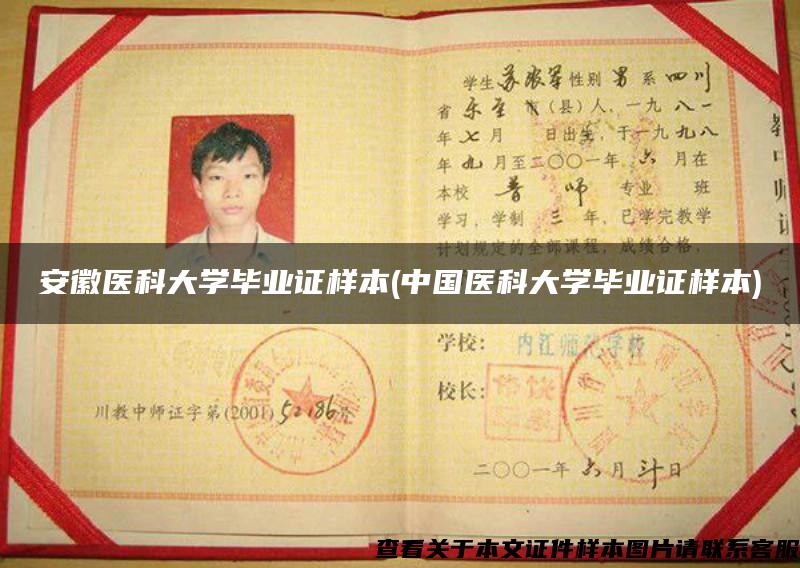 学生苏振军性别男系四川
省乐至市(县)人,一九八一
年七月 日出生,于一九九八
年九月至二〇〇一年六月在
本校 普师 专业 班
学习,学制三年,已学完教学
计划规定的全部课程,成绩合格,
安徽医科大学毕业证样本(中国医科大学毕业证样本)
学校: 内江师范学校
校长:
川教中师证字第(2001)52186号
二〇〇一年六月 日
查看关于本文证件样本图片请联系客服